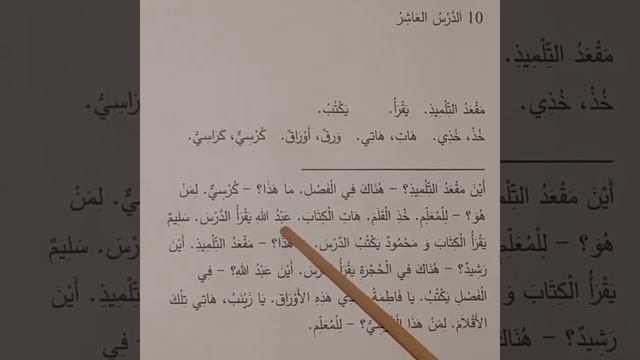 10 اَلدَّرْسُ العَاشِرُ
مَقْعَدُ التِّلْمِيذِ. يَقْرَأُ. يَكْتُبُ.
خُذْ، خُذِي. هَاتِ، هَاتِي. وَرَقٌ، أَوْرَاقٌ. كُرْسِيٌّ، كَرَاسِيُّ.
أَيْنَ مَقْعَدُ التِّلْمِيذِ؟ – هُنَاكَ فِي الْفَصْلِ. مَا هَذَا؟ – كُرْسِيٌّ. لِمَنْ
هُوَ؟ – لِلْمُعَلِّمِ. خُذِ الْقَلَمَ. هَاتِ الْكِتَابَ. عَبْدُ اللهِ يَقْرَأُ الدَّرْسَ. سَلِيمٌ
يَقْرَأُ الْكِتَابَ وَ مَحْمُودٌ يَكْتُبُ الدَّرْسَ. هَذَا؟ – مَقْعَدُ التِّلْمِيذِ. أَيْنَ
رَشِيدٌ؟ – هُنَاكَ فِي الْحُجْرَةِ يَقْرَأُ. أَيْنَ عَبْدُ اللهِ؟ – فِي
الْفَصْلِ يَكْتُبُ. يَا فَاطِمَةُ هَذِهِ الأَوْرَاقَ. يَا زَيْنَبُ، هَاتِي تِلْكَ
الأَقْلَامَ. لِمَنْ هَذَا – لِلْمُعَلِّمِ.